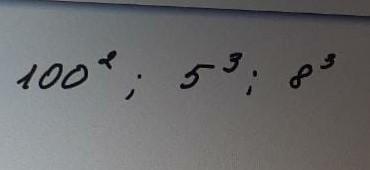 100²; 5³; 8³